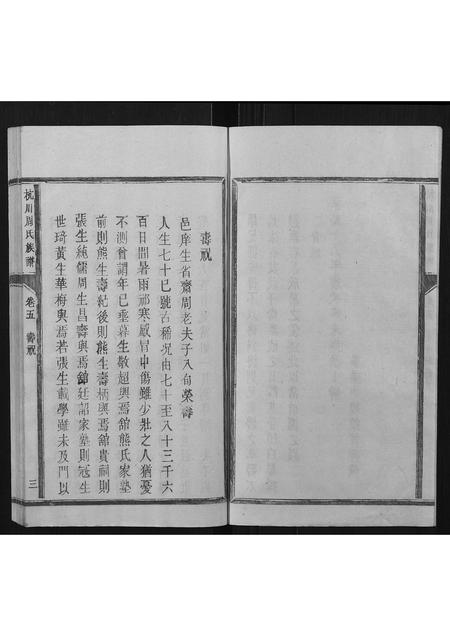 壽祝
邑庠生省齋周老夫子八旬榮壽
人生七十已號古稀况由七十至八十三千六
百日間暑雨祁寒感冒中傷難少壯之人猶憂
不測曾謂年已垂暮生敬超與焉舘熊氏家塾
前則熊生壽紀後則熊生壽柄與焉舘貴祠則
張生純儒周生昌壽與焉舘廷詔家塾則冠生
世琦黃生華梅與焉若張生載學雖未及門以
杭川周氏族譜
卷五
壽祝
三